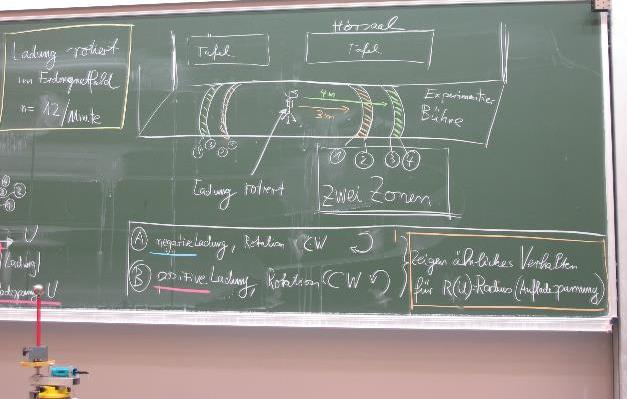 Hörsaal
Tafel
Tafel
Ladung rotiert
im Erdmagnetfeld
n = 12/Minute
S
4m
3m
Experimentier
Bühne
① ② ③ ④
Ladung rotiert
Zwei Zonen
U
Ladung
U
Ⓐ negative Ladung, Rotation CW
Ⓑ positive Ladung, Rotation CCW
zeigen ähnliches Verhalten
für R(U)-Radius (Aufladespannung)